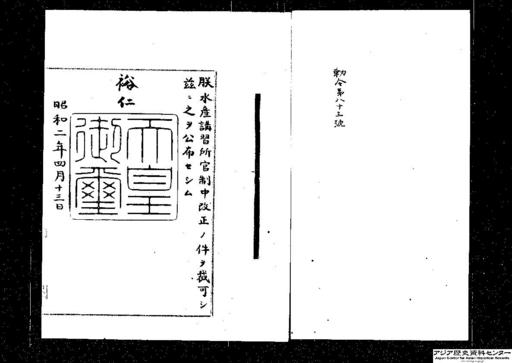 勅令第八十三號
朕水産講習所官制中改正ノ件ヲ裁可シ
茲ニ之ヲ公布セシム
裕仁
天皇
御璽
昭和二年四月十三日
アジア歴史資料センター
Japan Center for Asian Historical Records